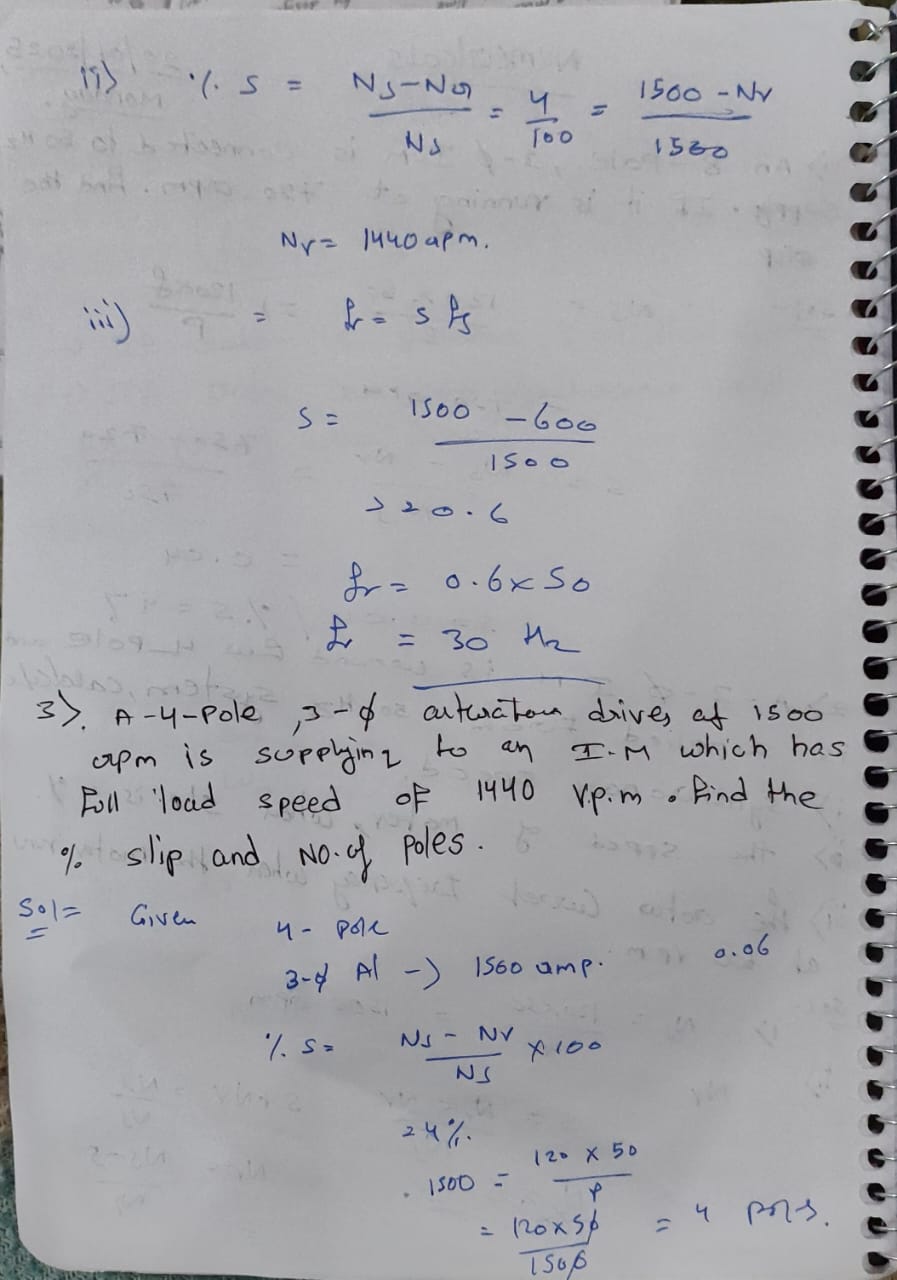 ii) % S = Ns-Nr / Ns = 4/100 = 1500 - Nr / 1500
Nr = 1440 rpm.
iii) = fr = s fs
S = 1500 - 600 / 1500
s = 0.6
fr = 0.6 x 50
fr = 30 Hz
3). A-4-Pole, 3-ϕ alternator drives at 1500
rpm is supplying to an I.M which has
Full load speed of 1440 r.p.m. find the
% slip and NO. of poles.
Sol= Given 4 - pole
3-ϕ Al -> 1500 0.06
% S = Ns - Nr / Ns x 100
= 4%.
1500 = 120 x 50 / P
= 120 x 50 / 1500 = 4